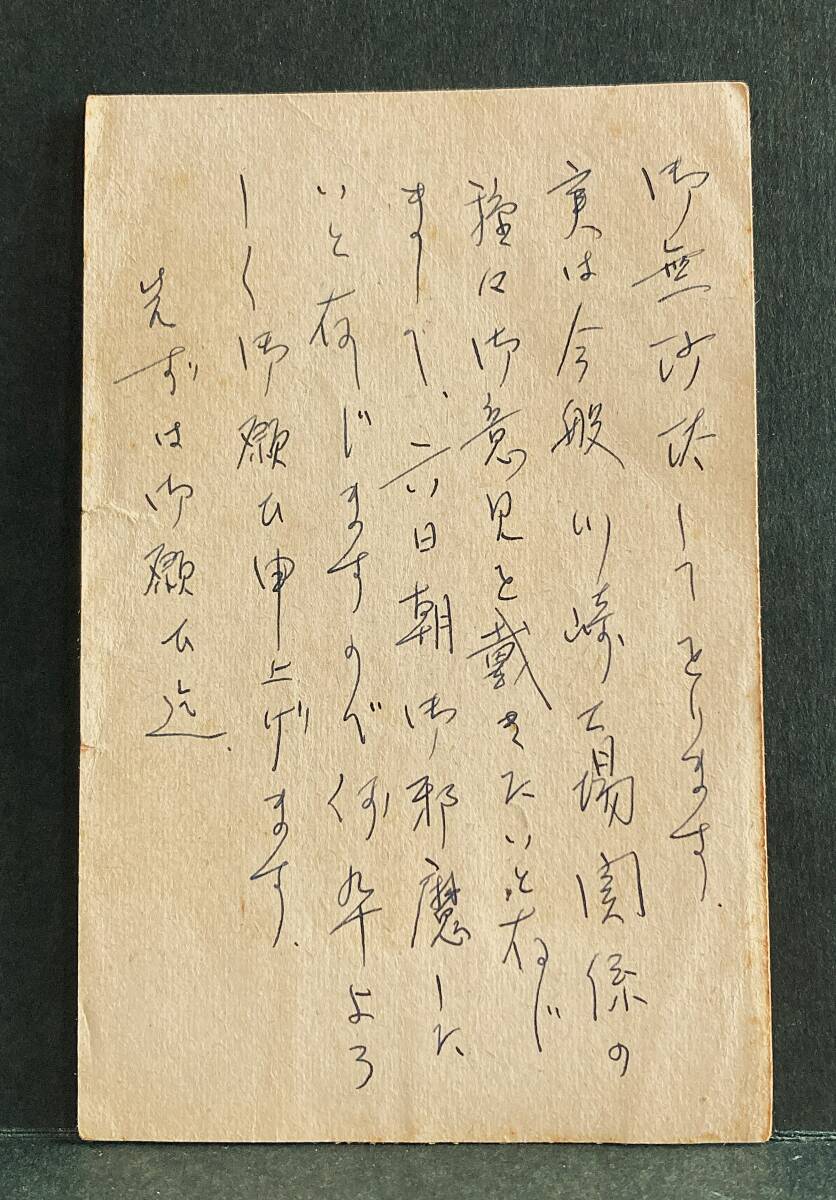 御無沙汰してをります。
実は今般川崎工場関係の
種々御意見を戴きたいと存じ
まして、日朝御邪魔した
いと存じますので何卒よろ
しく御願ひ申上げます。
先ずは御願ひ迄。